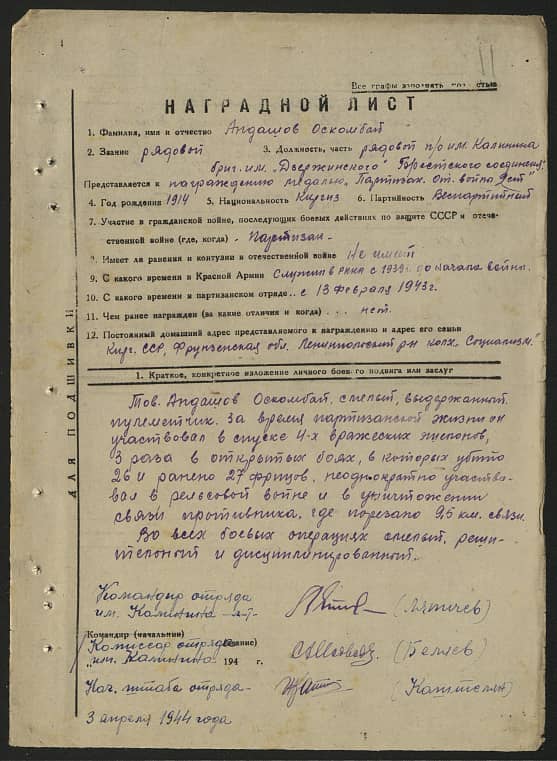 Все графы заполнять полностью
НАГРАДНОЙ ЛИСТ
1. Фамилия, имя и отчество Андашов Оскомбай
2. Звание рядовой 3. Должность, часть рядовой п/о им. Калинина
бриг. им. „Дзержинского" Брестского соединен.
Представляется к награждению медалью „Партизан. От. война I ст"
4. Год рождения 1914 5. Национальность Киргиз 6. Партийность Беспартийный
7. Участие в гражданской войне, последующих боевых действиях по защите СССР и отече-
ственной войне (где, когда) . Партизан -
8. Имеет ли ранения и контузии в отечественной войне Не имеет
9. С какого времени в Красной Армии Служил в РККА с 1939г. до начала войны.
10. С какого времени в партизанском отряде . . с 13 февраля 1943г.
11. Чем ранее награжден (за какие отличия и когда) . . . нет.
12. Постоянный домашний адрес представляемого к награждению и адрес его семьи
Кирг. ССР, Фрунзенская обл. Ленинпольский р-н колх. „Социализм."
ДЛЯ ПОДШИВКИ
1. Краткое, конкретное изложение личного боевого подвига или заслуг
Тов. Андашов Оскомбай, смелый, выдержанный
пулеметчик. За время партизанской жизни он
участвовал в спуске 4-х вражеских эшелонов,
3 раза в открытых боях, в которых убито
26 и ранено 27 фрицов, неоднократно участво-
вал в рельсовой войне и в уничтожении
связи противника, где порезано 9,5 км. связи.
Во всех боевых операциях смелый, реши-
тельный и дисциплинированный.
Командир отряда
им. Калинина (Ляпичев)
Командир (начальник)
Комиссар отряда (звание)
„им. Калинина 194 г. (Беляев)
Нач. штаба отряда-
3 апреля 1944 года